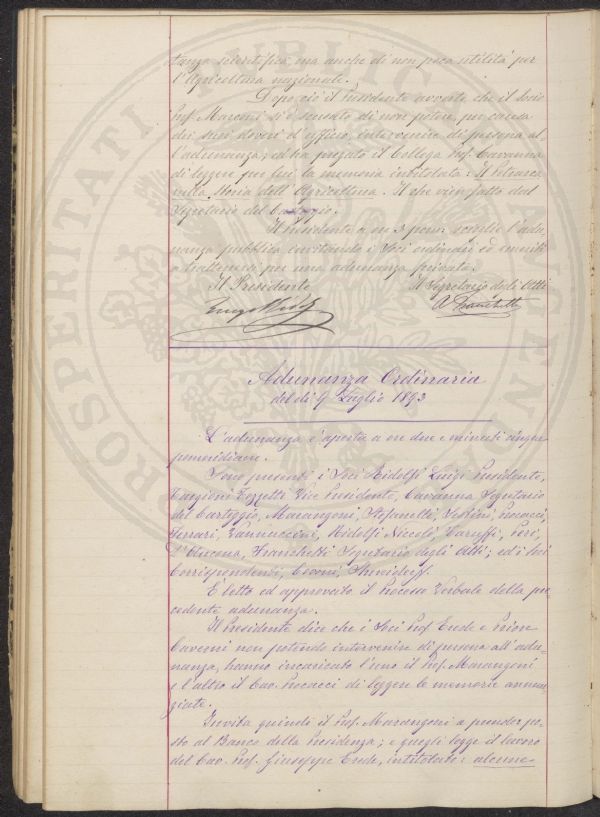 tanza scientifica, ma anche di non poca utilità per
l'Agricoltura nazionale.
Dopo ciò il Presidente avverte che il Socio
Prof. Marconi si è scusato di non potere, per causa
dei suoi doveri d'ufficio, intervenire di persona al,
l'adunanza, ed ha pregato il Collega Prof. Cavanna
di leggere per lui la memoria intitolata: Il
nella Storia dell'Agricoltura. Il che vien fatto dal
Segretario del Carteggio.
Il Presidente a ore 3 pom: scioglie l'adu,
nanza pubblica invitando i Soci ordinari ed emeriti
a trattenersi per una adunanza privata.
Il Presidente Il Segretario degli Atti
Luigi Ridolfi A. Franchetti
Adunanza Ordinaria
del dì 9 Luglio 1893
L'adunanza è aperta a ore due e minuti cinque
pomeridiane.
Sono presenti i Soci Ridolfi Luigi Presidente,
Targioni Tozzetti Vice Presidente, Cavanna Segretario
del Carteggio, Marangoni, Stefanelli, Pestini, Procacci,
Ferrari, Vannuccini, Ridolfi Niccolò, Caruffi, Peri,
D'Ancona, Franchetti Segretario degli Atti; ed i Soci
Corrispondenti,
È letto ed approvato il Processo Verbale della pre,
cedente adunanza.
Il Presidente dice che i Soci Prof. Erede e Prior
Caveoni non potendo intervenire di persona all'adu,
nanza, hanno incaricato l'uno il Prof. Marangoni
e l'altro il Cav. Procacci di leggere le memorie annun,
ziate.
Invita quindi il Prof. Marangoni a prender po,
sto al Banco della Presidenza; e quegli legge il lavoro
del Cav. Prof. Giuseppe Erede, intitolato: alcune
PROSPERITATI PUBLICAE AUGENDAE